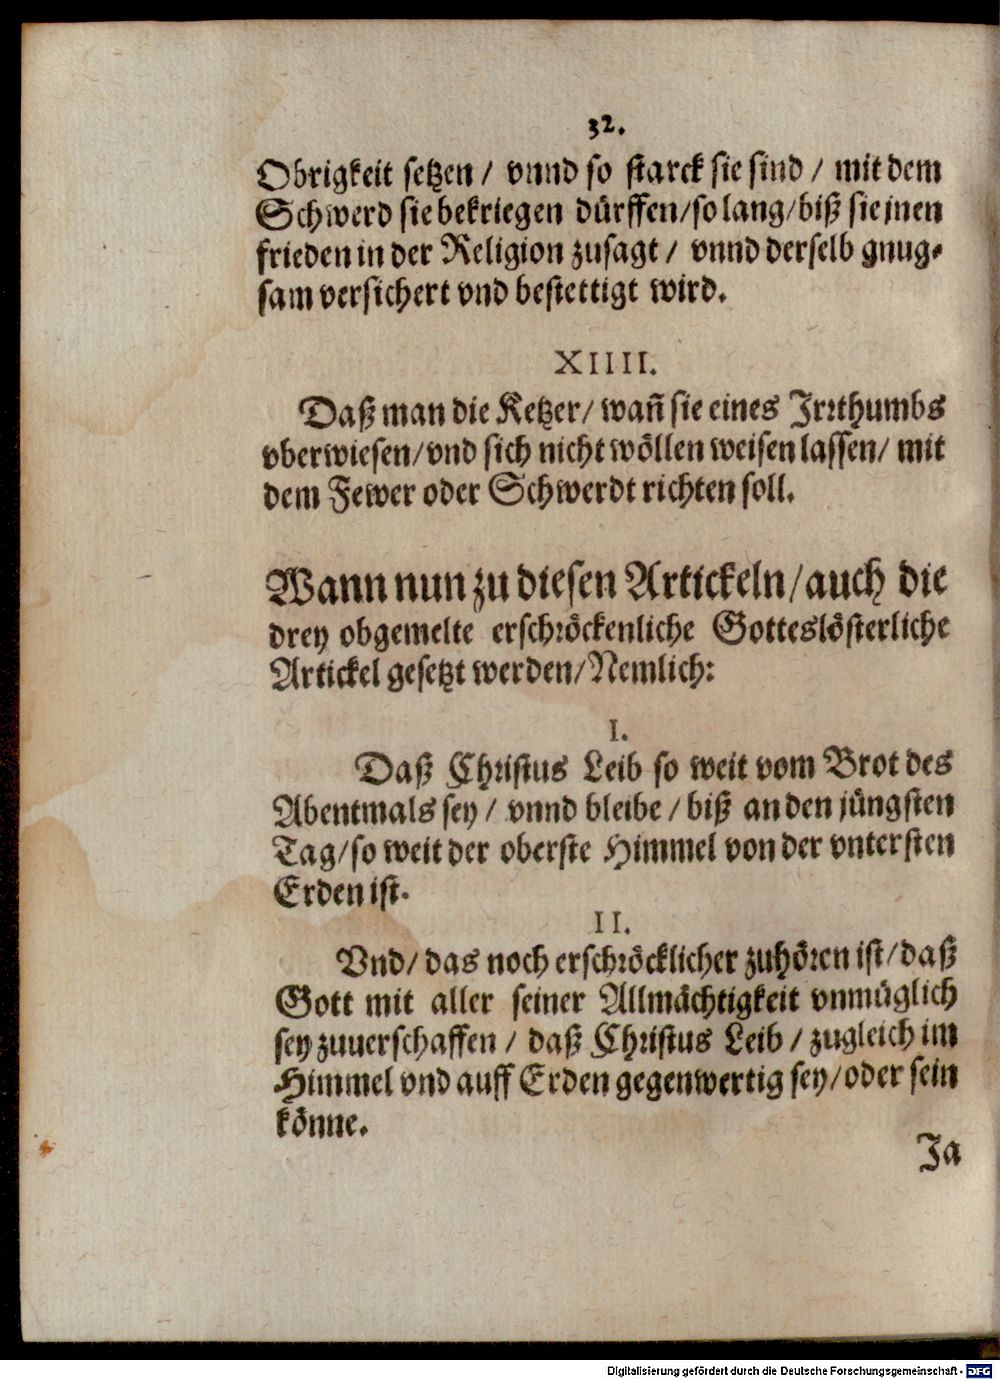 32.
Obrigkeit setzen / vnnd so starck sie sind / mit dem
Schwerd sie bekriegen dürffen/so lang/biß sie jnen
frieden in der Religion zusagt / vnnd derselb gnug⸗
sam versichert vnd bestettigt wird.
XIIII.
Daß man die Ketzer/ wañ sie eines Irrthumbs
vberwiesen/vnd sich nicht wöllen weisen lassen/ mit
dem Fewer oder Schwerdt richten soll.
Wann nun zu diesen Artickeln/auch die
drey obgemelte erschröckenliche Gotteslösterliche
Artickel gesetzt werden/Nemlich:
I.
Daß Christus Leib so weit vom Brot des
Abentmals sey / vnnd bleibe / biß an den jüngsten
Tag/so weit der oberste Himmel von der vntersten
Erden ist.
II.
Vnd/ das noch erschröcklicher zuhören ist/daß
Gott mit aller seiner Allmächtigkeit vnmüglich
sey zuuerschaffen / daß Christus Leib / zugleich im
Himmel vnd auff Erden gegenwertig sey/oder sein
könne.
Ja
Digitalisierung gefördert durch die Deutsche Forschungsgemeinschaft - DFG